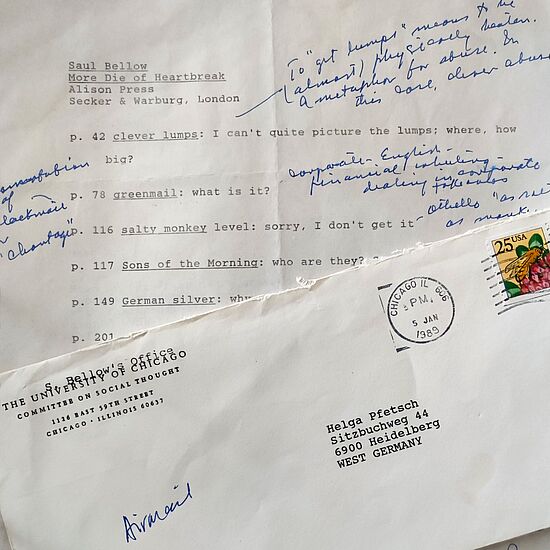 Saul Bellow
More Die of Heartbreak
Alison Press
Secker & Warburg, London
To "get lumps" means to be
(almost) physically beaten.
A metaphor for abuse. In
this case, clever abuse
p. 42 clever lumps: I can't quite picture the lumps; where, how
big?
of
blackmail
"chantage"
p. 78 greenmail: what is it?
corporate-English-
financial
dealing in corporate
takeovers
p. 116 salty monkey level: sorry, I don't get it
Othello "as
as monk
p. 117 Sons of the Morning: who are they?
p. 149 German silver: why
p. 201
S. Bellow's Office
THE UNIVERSITY OF CHICAGO
COMMITTEE ON SOCIAL THOUGHT
1126 EAST 59TH STREET
CHICAGO · ILLINOIS 60637
CHICAGO IL 606
PM
5 JAN
1989
25 USA
Helga Pfetsch
Sitzbuchweg 44
6900 Heidelberg
WEST GERMANY
Airmail